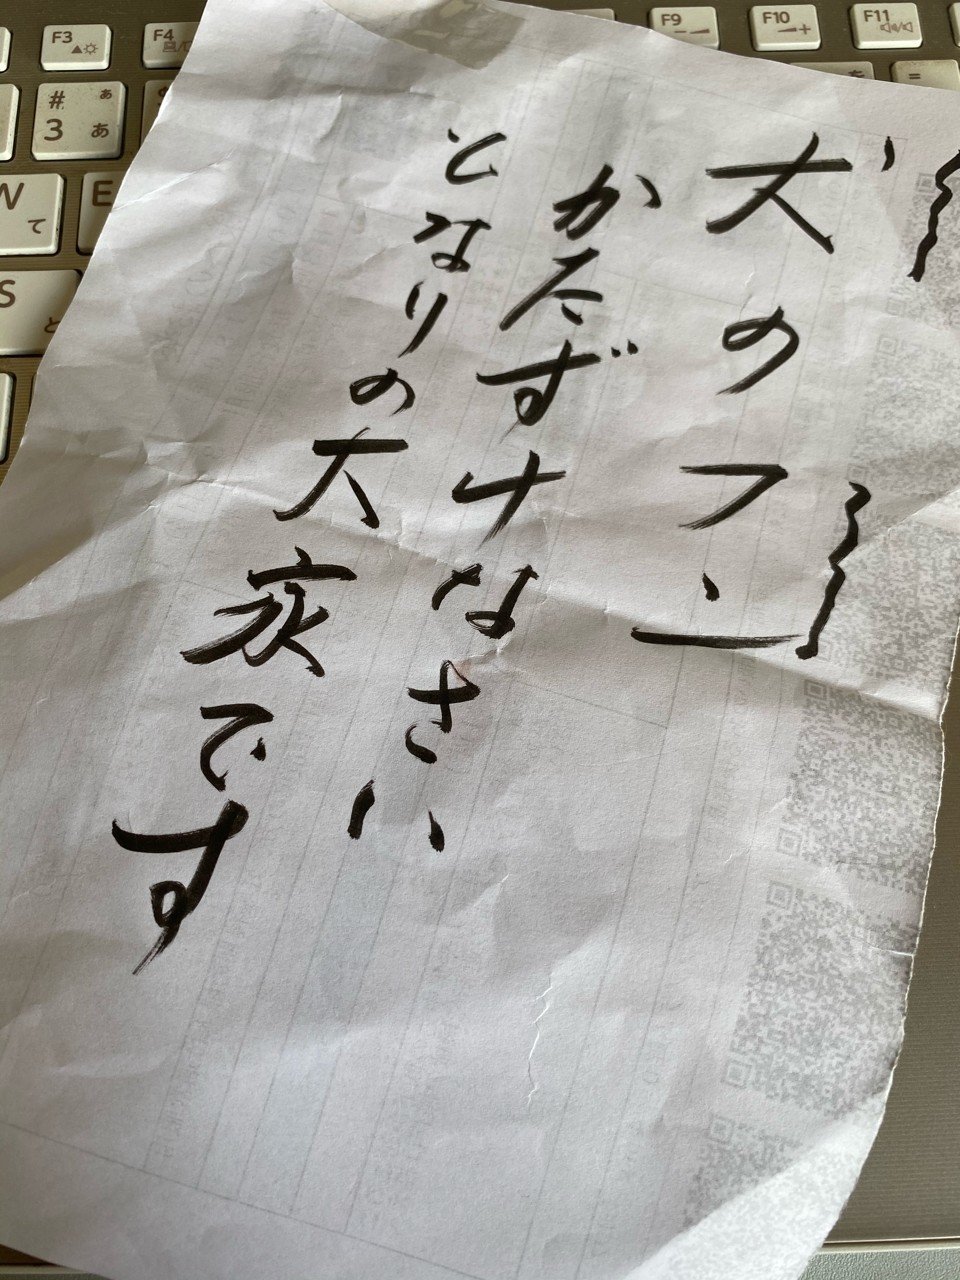 犬のフン
かたずけなさい
となりの大家です
F3
F4
F9
F10
F11
# ぁ
3 あ
W
て
E
S
と
=